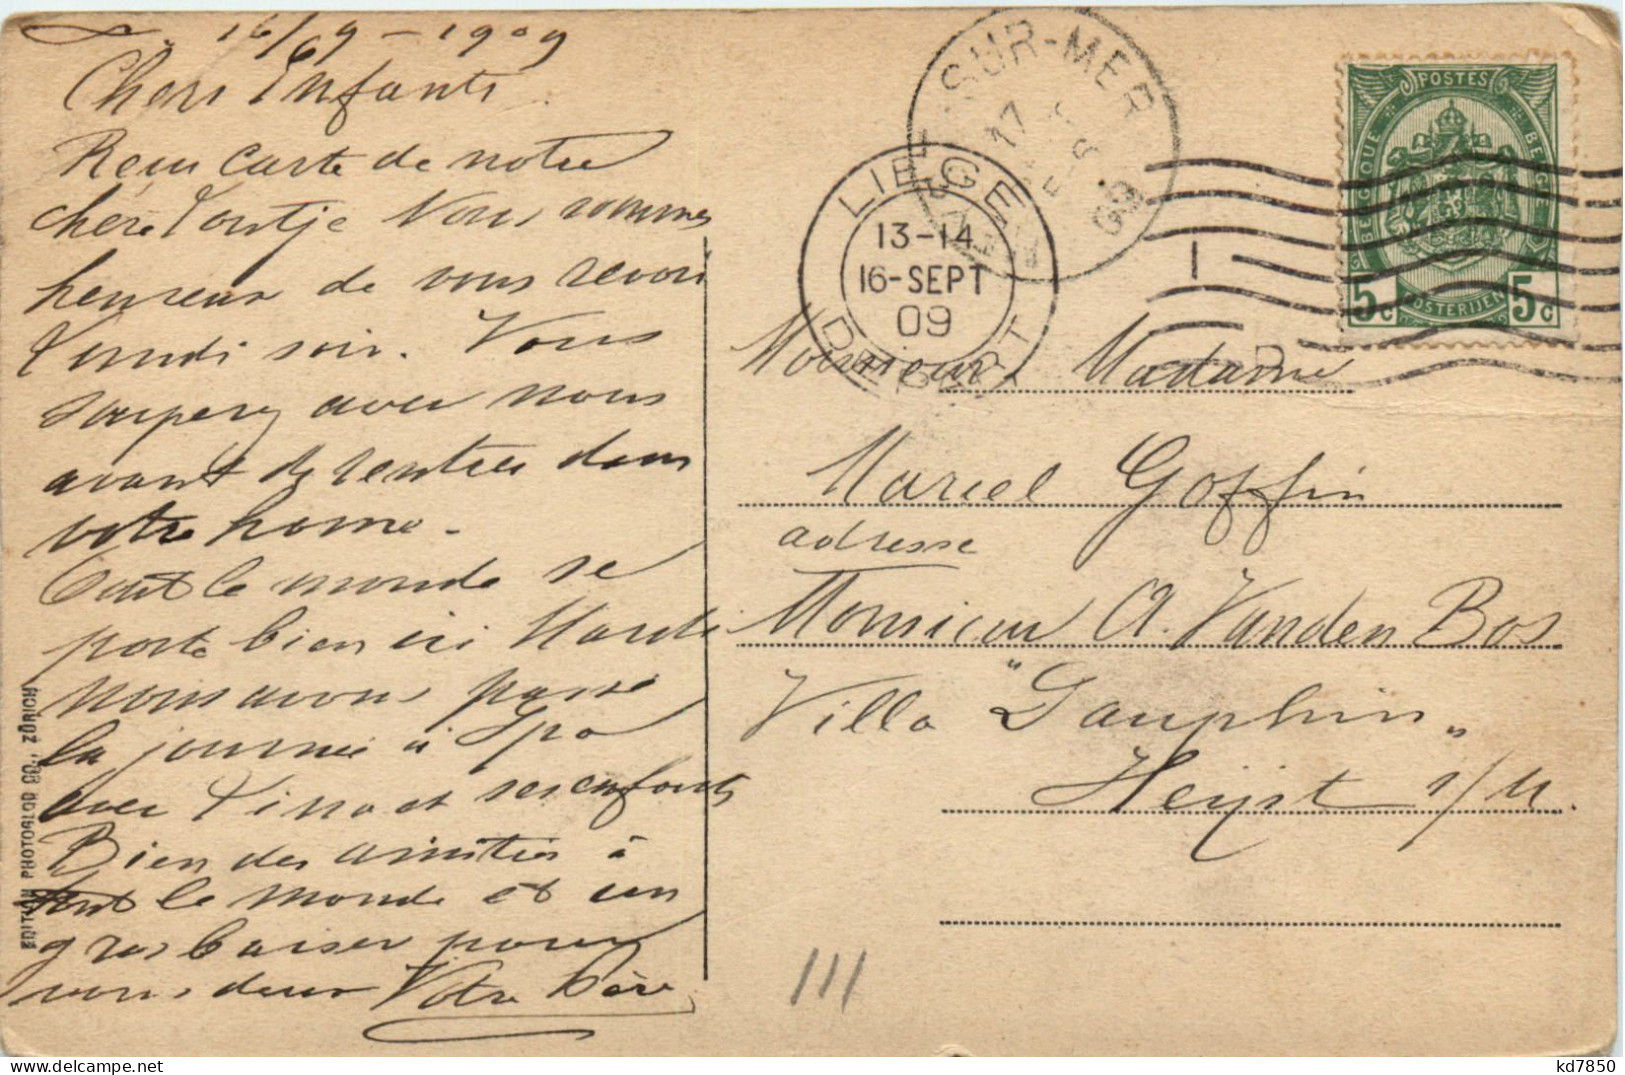 L. 16/69 - 1909
Chers Enfants
Reçu carte de notre
chère Tontje Nous sommes
heureux de vous revoir
lundi soir. Vous
souperez avec nous
avant de rentrer dans
votre home.
Tout le monde se
porte bien ici Mardi
nous avons passé
la journée à Spa
avec et ses enfants
Bien des amitiés à
tout le monde et un
gros baiser pour
vous deux Votre Père
EDITION PHOTOGLOB CO., ZÜRICH
SUR-MER
17
09
LIEGE
13-14
16-SEPT
09
DEPART
1
POSTES
BELGIQUE
BELGIE
5c POSTERIJEN 5c
Monsieur Madame
Marcel Goffin
adresse
Monsieur A. Vanden Bos
Villa "Dauphin"
Heyst s/M.
111
kd7850